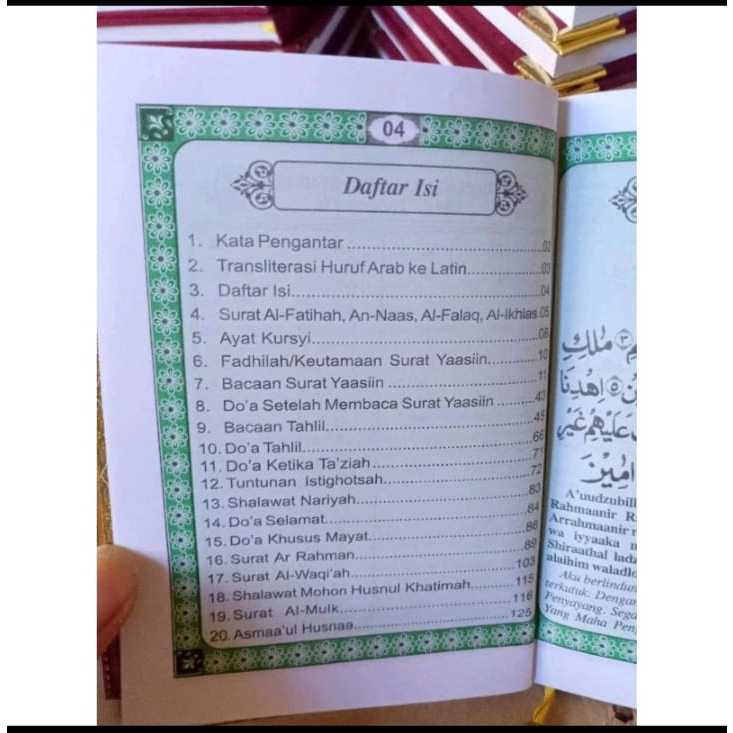 04
Daftar Isi
1. Kata Pengantar ........................................ 02
2. Transliterasi Huruf Arab ke Latin............... 03
3. Daftar Isi.................................................. 04
4. Surat Al-Fatihah, An-Naas, Al-Falaq, Al-Ikhlas.05
5. Ayat Kursyi............................................... 08
6. Fadhilah/Keutamaan Surat Yaasiin........... 10
7. Bacaan Surat Yaasiin .............................. 11
8. Do'a Setelah Membaca Surat Yaasiin ........ 43
9. Bacaan Tahlil............................................ 45
10. Do'a Tahlil............................................... 66
11. Do'a Ketika Ta'ziah ................................. 71
12. Tuntunan Istighotsah............................... 72
13. Shalawat Nariyah.................................... 83
14. Do'a Selamat.......................................... 84
15. Do'a Khusus Mayat................................. 88
16. Surat Ar Rahman..................................... 89
17. Surat Al-Waqi'ah..................................... 103
18. Shalawat Mohon Husnul Khatimah.......... 115
19. Surat Al-Mulk.......................................... 116
20. Asmaa'ul Husnaa.................................... 125
مٰلِكِ
اِهْدِنَا
عَلَيْهِمْ غَيْرِ
اٰمِيْنَ
A'uudzubill
Rahmaanir R
Arrahmaanir r
wa iyyaaka n
Shiraathal ladz
alaihim waladlo
Aku berlindun
terkutuk. Dengan
Penyayang. Sega
Yang Maha Pen